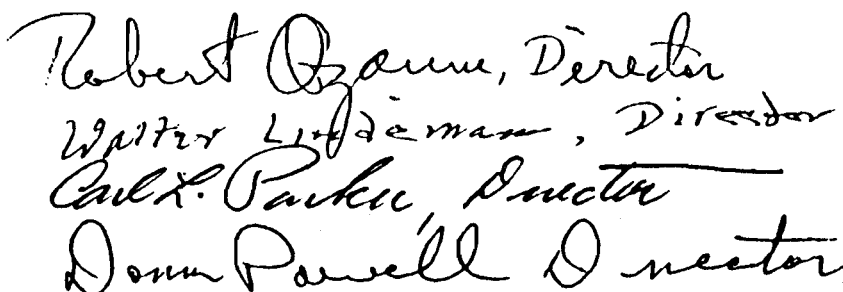 Robert Ozanne, Director
Walter Lindemann, Director
Carl L. Parker, Director
Donn Powell Director